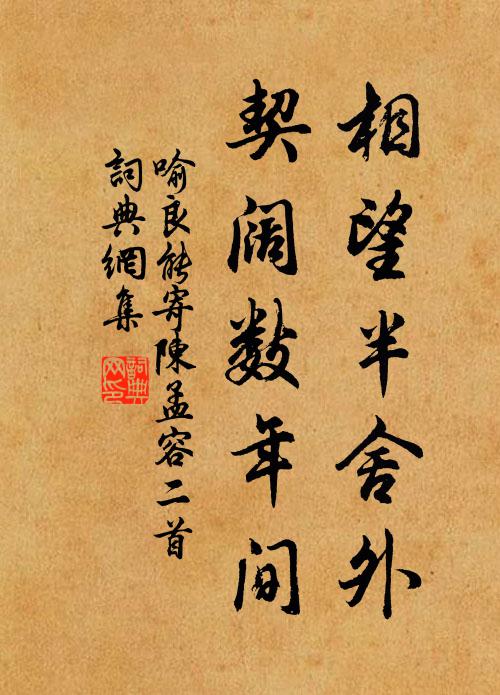 相望半舍外
契阔数年间
喻良能寄陳孟容二首
詞典網集
詞典
网印